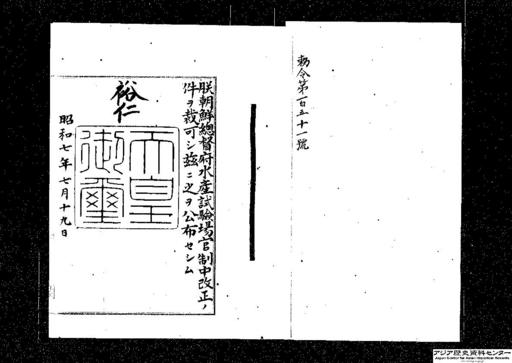 勅令第百五十一號
朕朝鮮總督府水産試驗場官制中改正ノ
件ヲ裁可シ茲ニ之ヲ公布セシム
裕仁
天皇
御璽
昭和七年七月十九日
アジア歴史資料センター
Japan Center for Asian Historical Records